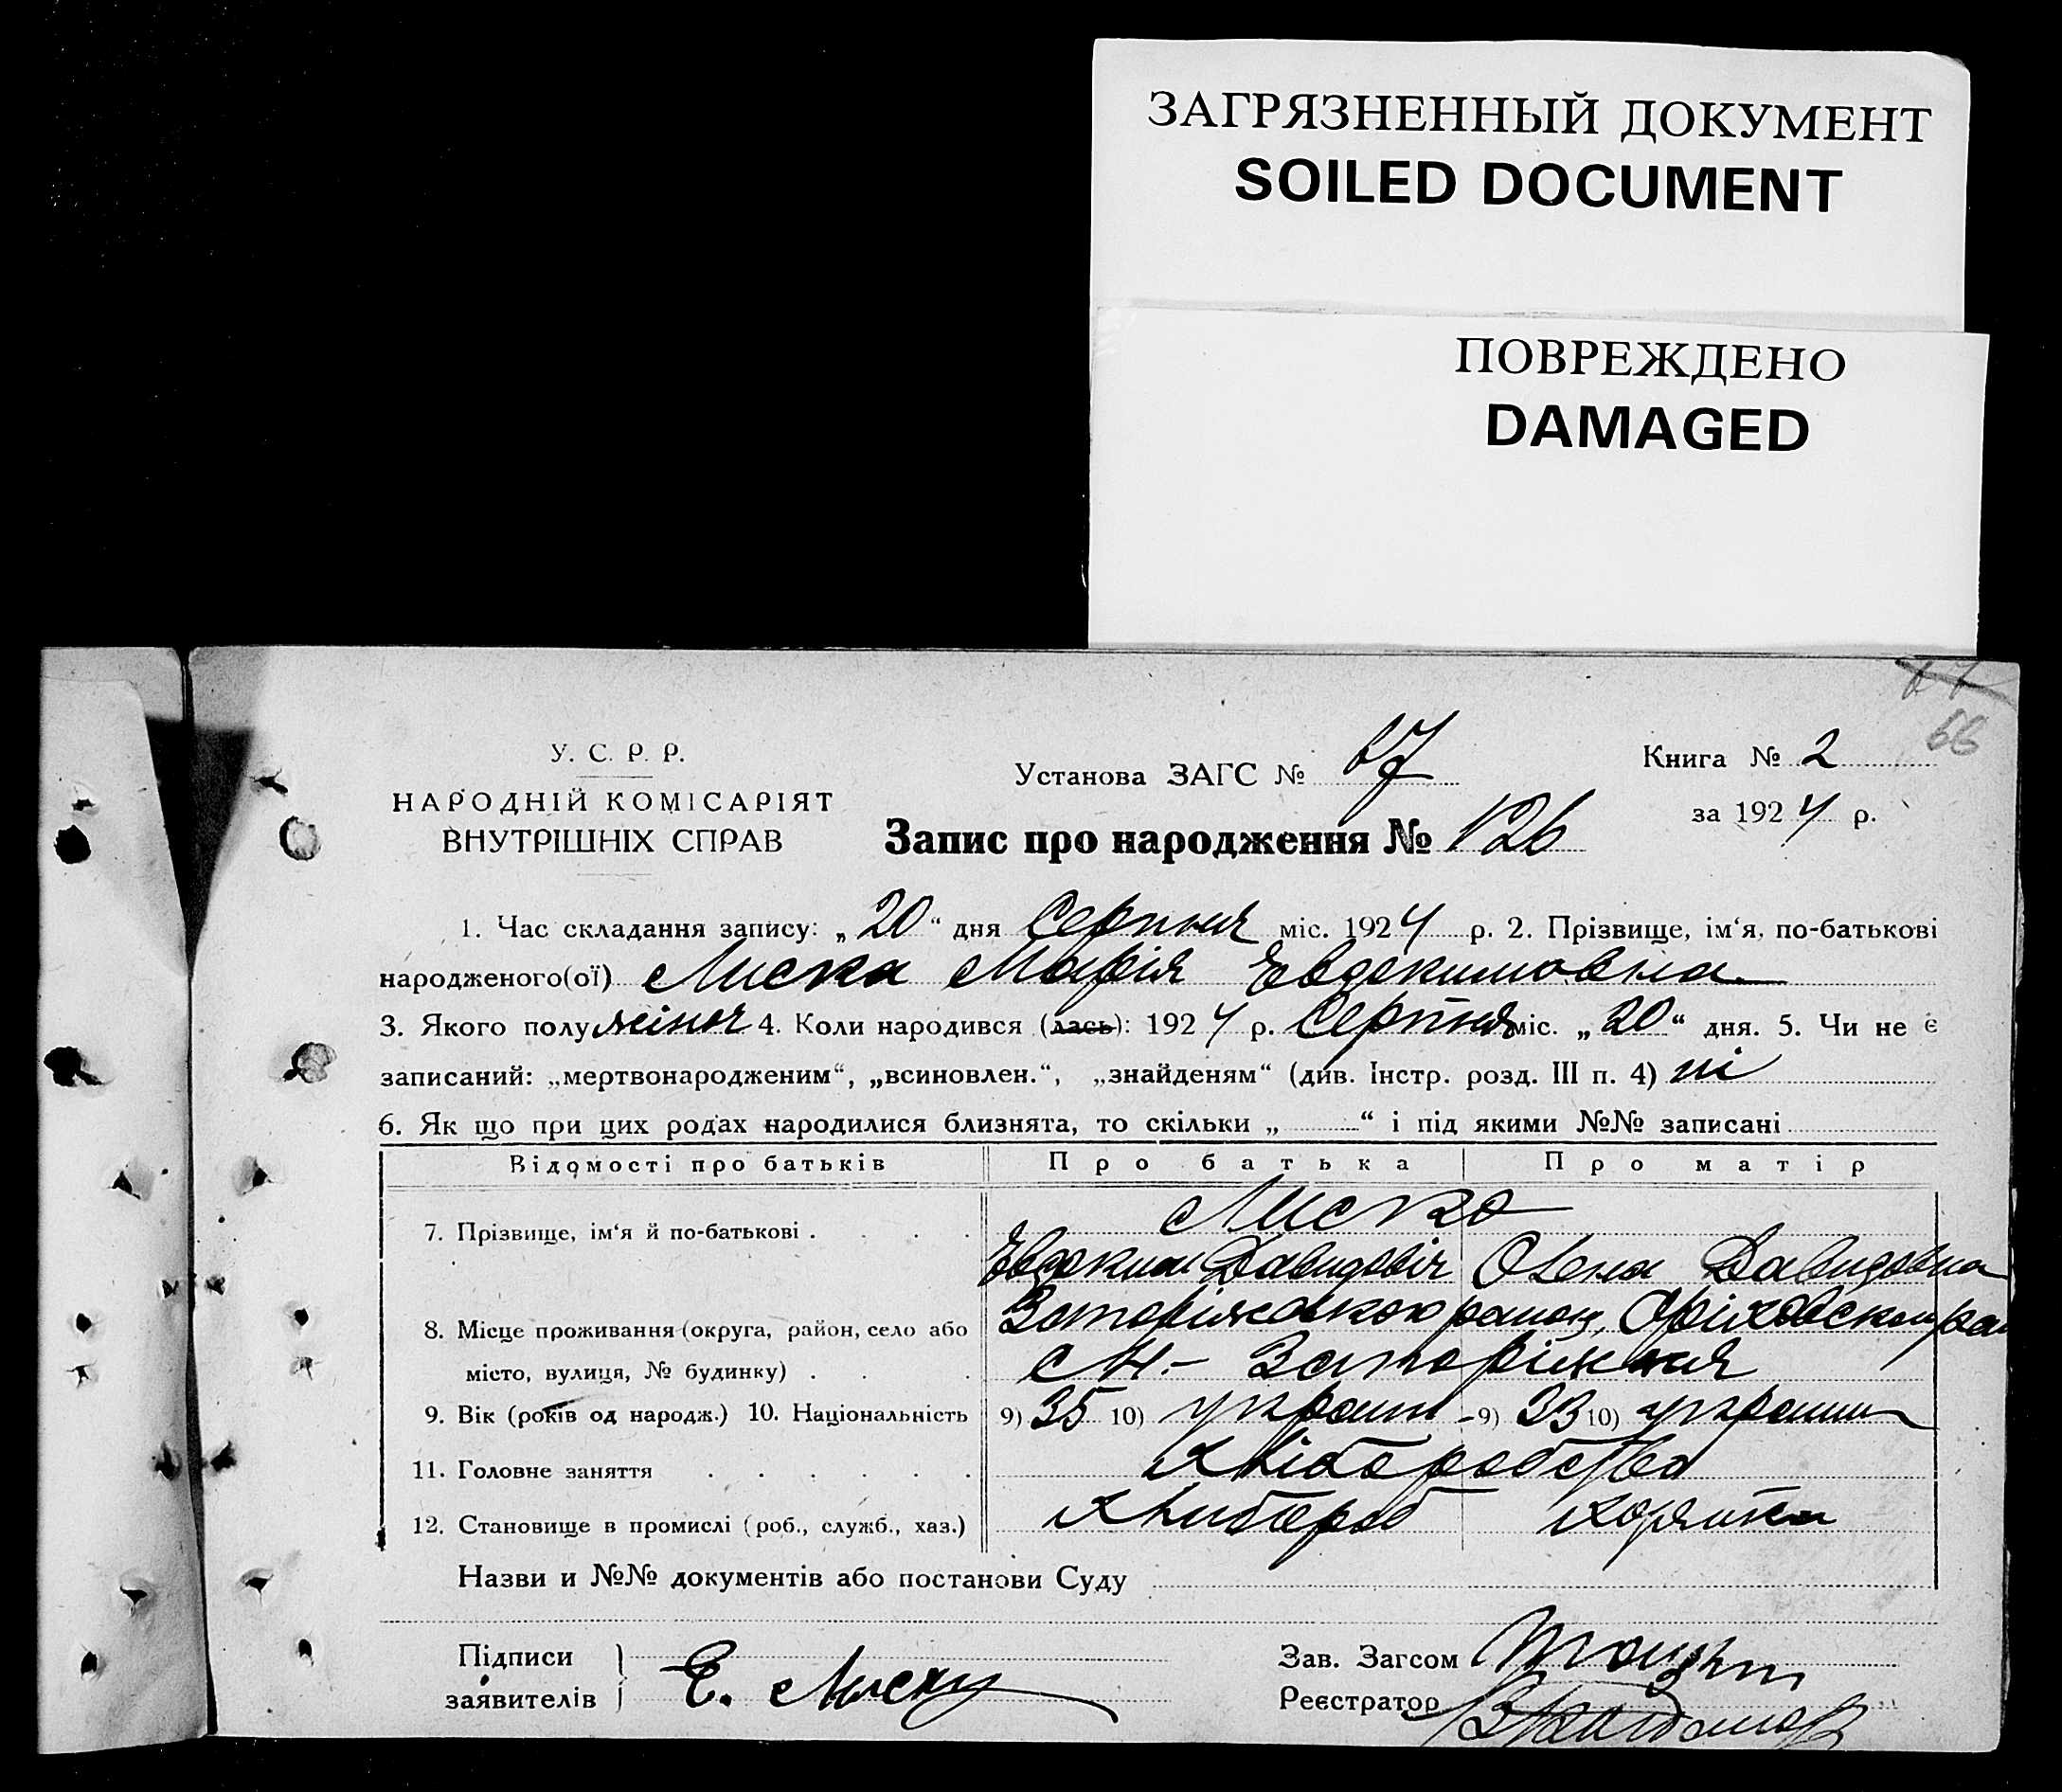 ЗАГРЯЗНЕННЫЙ ДОКУМЕНТ
SOILED DOCUMENT
ПОВРЕЖДЕНО
DAMAGED
66
У. С. Р. Р.
НАРОДНІЙ КОМІСАРІЯТ
ВНУТРІШНІХ СПРАВ
Установа ЗАГС №
Книга № 2
за 1924 р.
Запис про народження № 126
1. Час складання запису: „20“ дня Серпня міс. 1924 р. 2. Прізвище, ім‘я, по-батькові
народженого(ої) Лиска Марія Евдокимовна
3. Якого полу жіноч 4. Коли народився (лась): 1924 р. Серпня міс. „20“ дня. 5. Чи не є
записаний: „мертвонародженим“, „всиновлен.“, „знайденям“ (див. Інстр. розд. III п. 4) ні
6. Як що при цих родах народилися близнята, то скільки „ “ і під якими №№ записані
Відомості про батьків Про батька Про матір
7. Прізвище, ім‘я й по-батькові Лиско
Евдоким Давидовіч Олена Давидовна
8. Місце проживання (округа, район, село або Оріховскому
місто, вулиця, № будинку)
9. Вік (років од народж.) 10. Національність 9) 35 10) україн - 9) 33 10)
11. Головне заняття Хліборобство
12. Становище в промислі (роб., служб., хаз.) Хлибороб
Назви и №№ документів або постанови Суду
Підписи
заявителів Е. Лиску
Зав. Загсом
Реєстратор